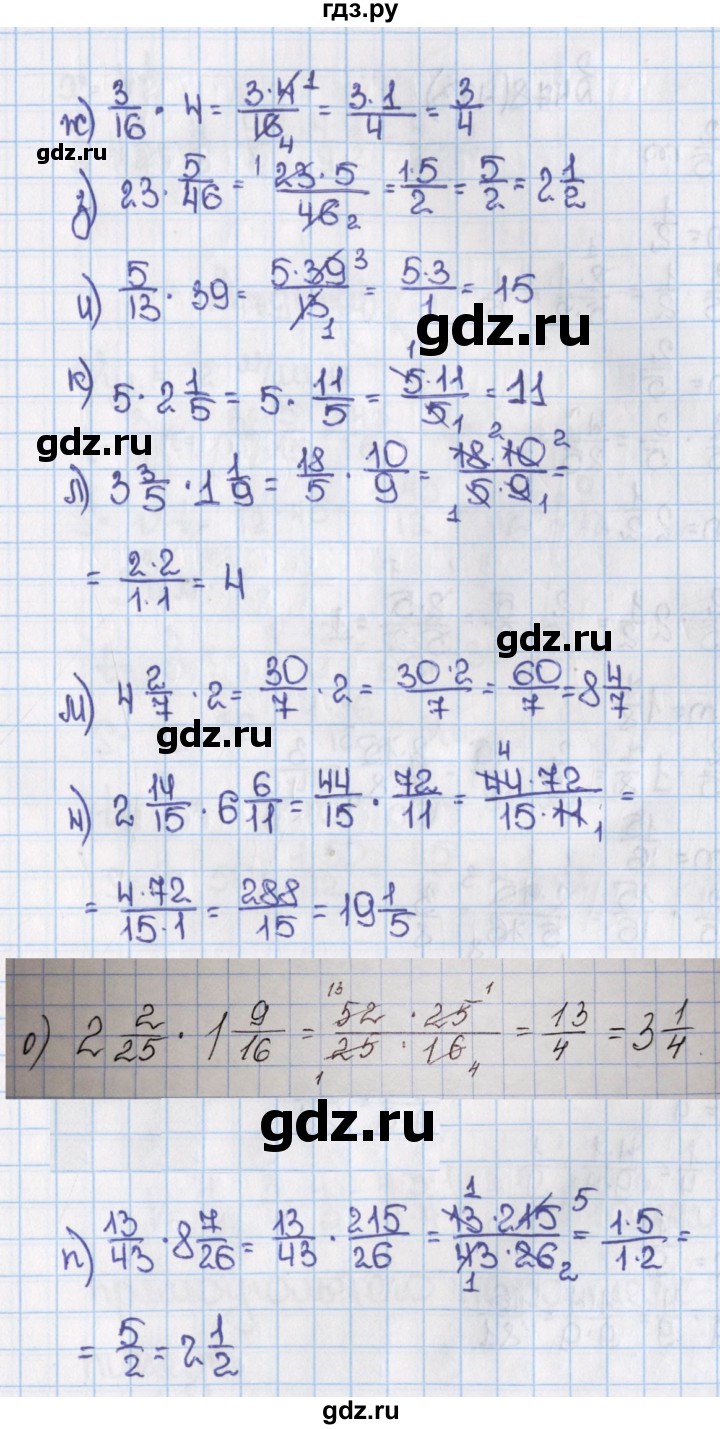 гдз.ру
ж) 3/16 · 4 = 3·4 1/16 4 = 3·1/4 = 3/4
з) 23 · 5/46 = 1 23·5/46 2 = 1·5/2 = 5/2 = 2 1/2
и) 5/13 · 39 = 5·39 3/13 1 = 5·3/1 = 15
gdz.ru
к) 5 · 2 1/5 = 5 · 11/5 = 1 5·11/5 1 = 11
gdz.ru
л) 3 3/5 · 1 1/9 = 18/5 · 10/9 = 18 2·10 2/1 5·9 1 =
= 2·2/1·1 = 4
gdz.ru
м) 4 2/7 · 2 = 30/7 · 2 = 30·2/7 = 60/7 = 8 4/7
gdz.ru
н) 2 14/15 · 6 6/11 = 44/15 · 72/11 = 4 44·72/15·11 1 =
= 4·72/15·1 = 288/15 = 19 1/5
о) 2 2/25 · 1 9/16 = 13 52 · 25 1/1 25 · 16 4 = 13/4 = 3 1/4.
gdz.ru
п) 13/43 · 8 7/26 = 13/43 · 215/26 = 1 13·215 5/1 43·26 2 = 1·5/1·2 =
= 5/2 = 2 1/2
gdz.ru